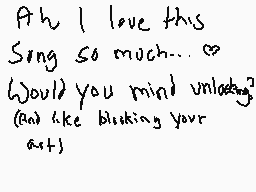 Ah I love this
Song so much... ♡
Would you mind unlocking?
(And like blocking your
art)